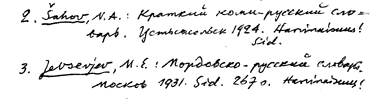 2. Šahov, N.A.: Краткий коми-русский сло-
варь. Устьсысольск 1924. Harvinaisuus!
Sid.
3. Jevsevjov, M.E.: Мордовско-русский словарь.
Москов 1931. Sid. 267 о. Harvinaisuus!